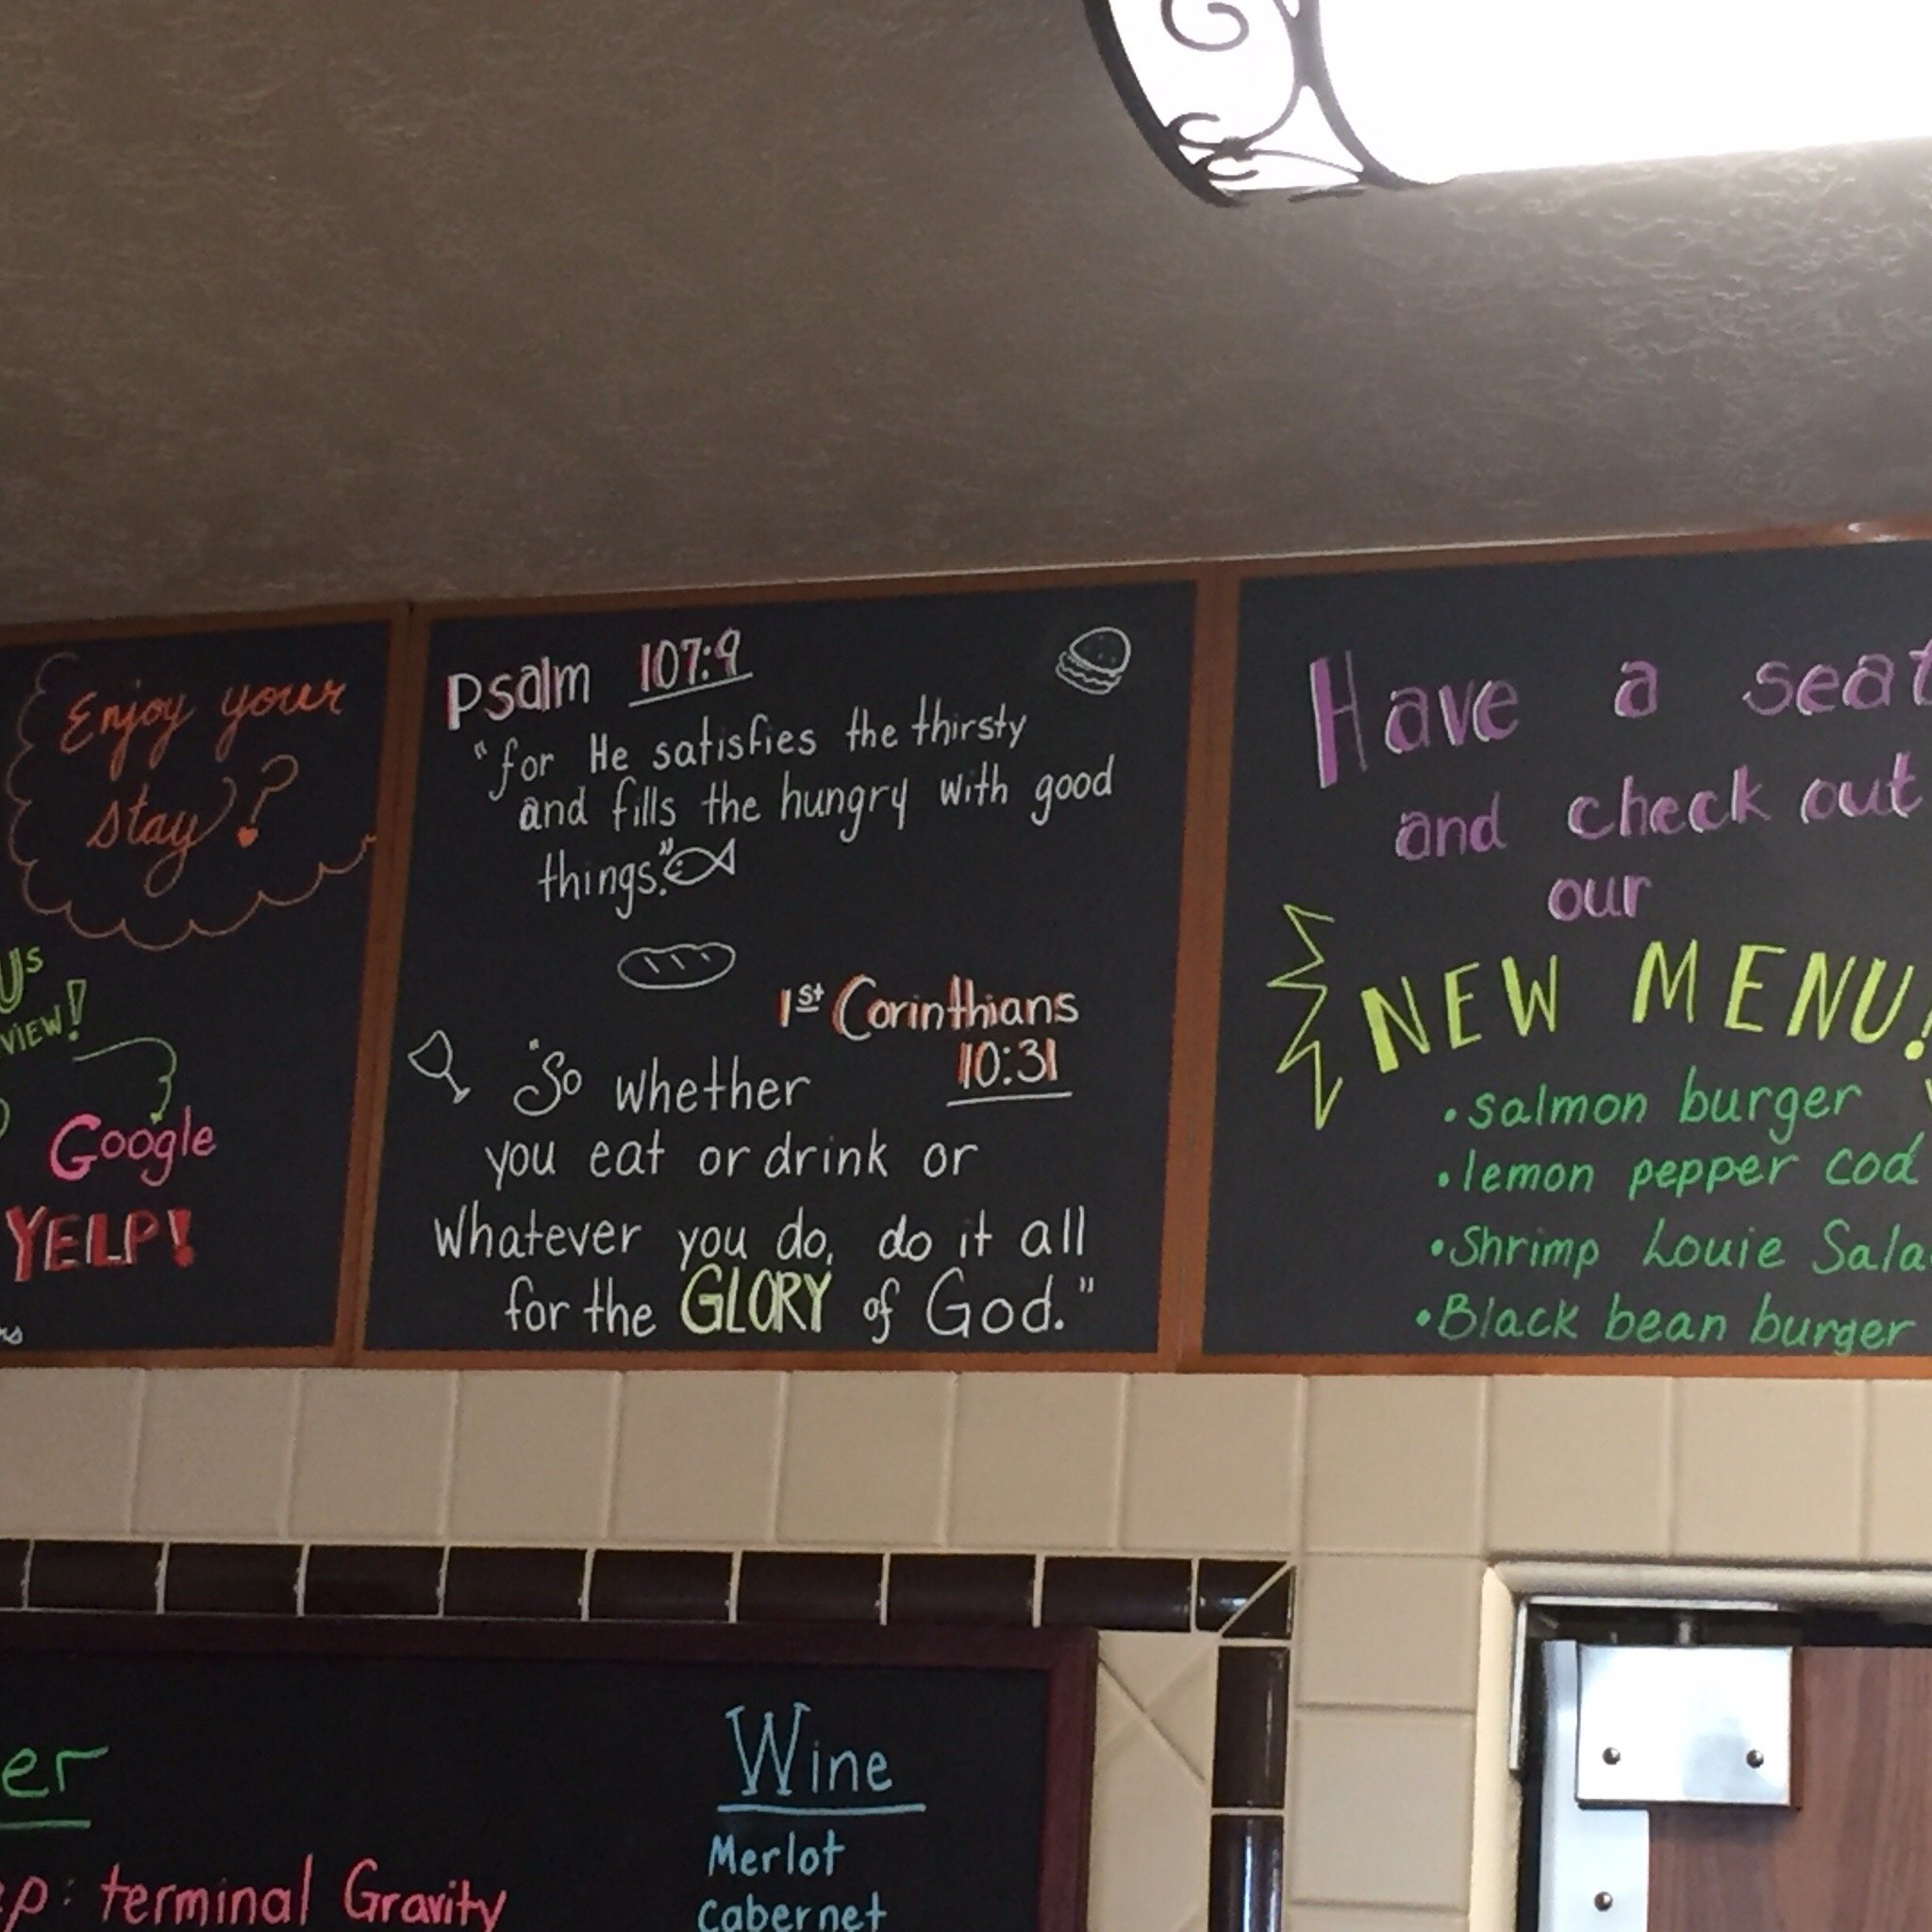 Enjoy your
stay?
Us
VIEW!
Google
YELP!
Psalm 107:9
"for He satisfies the thirsty
and fills the hungry with good
things."
1st Corinthians
10:31
"So whether
you eat or drink or
whatever you do, do it all
for the GLORY of God."
Have a seat
and check out
our
NEW MENU!
• salmon burger
• lemon pepper cod
• Shrimp Louie Sala
• Black bean burger
er
p: terminal Gravity
Wine
Merlot
Cabernet